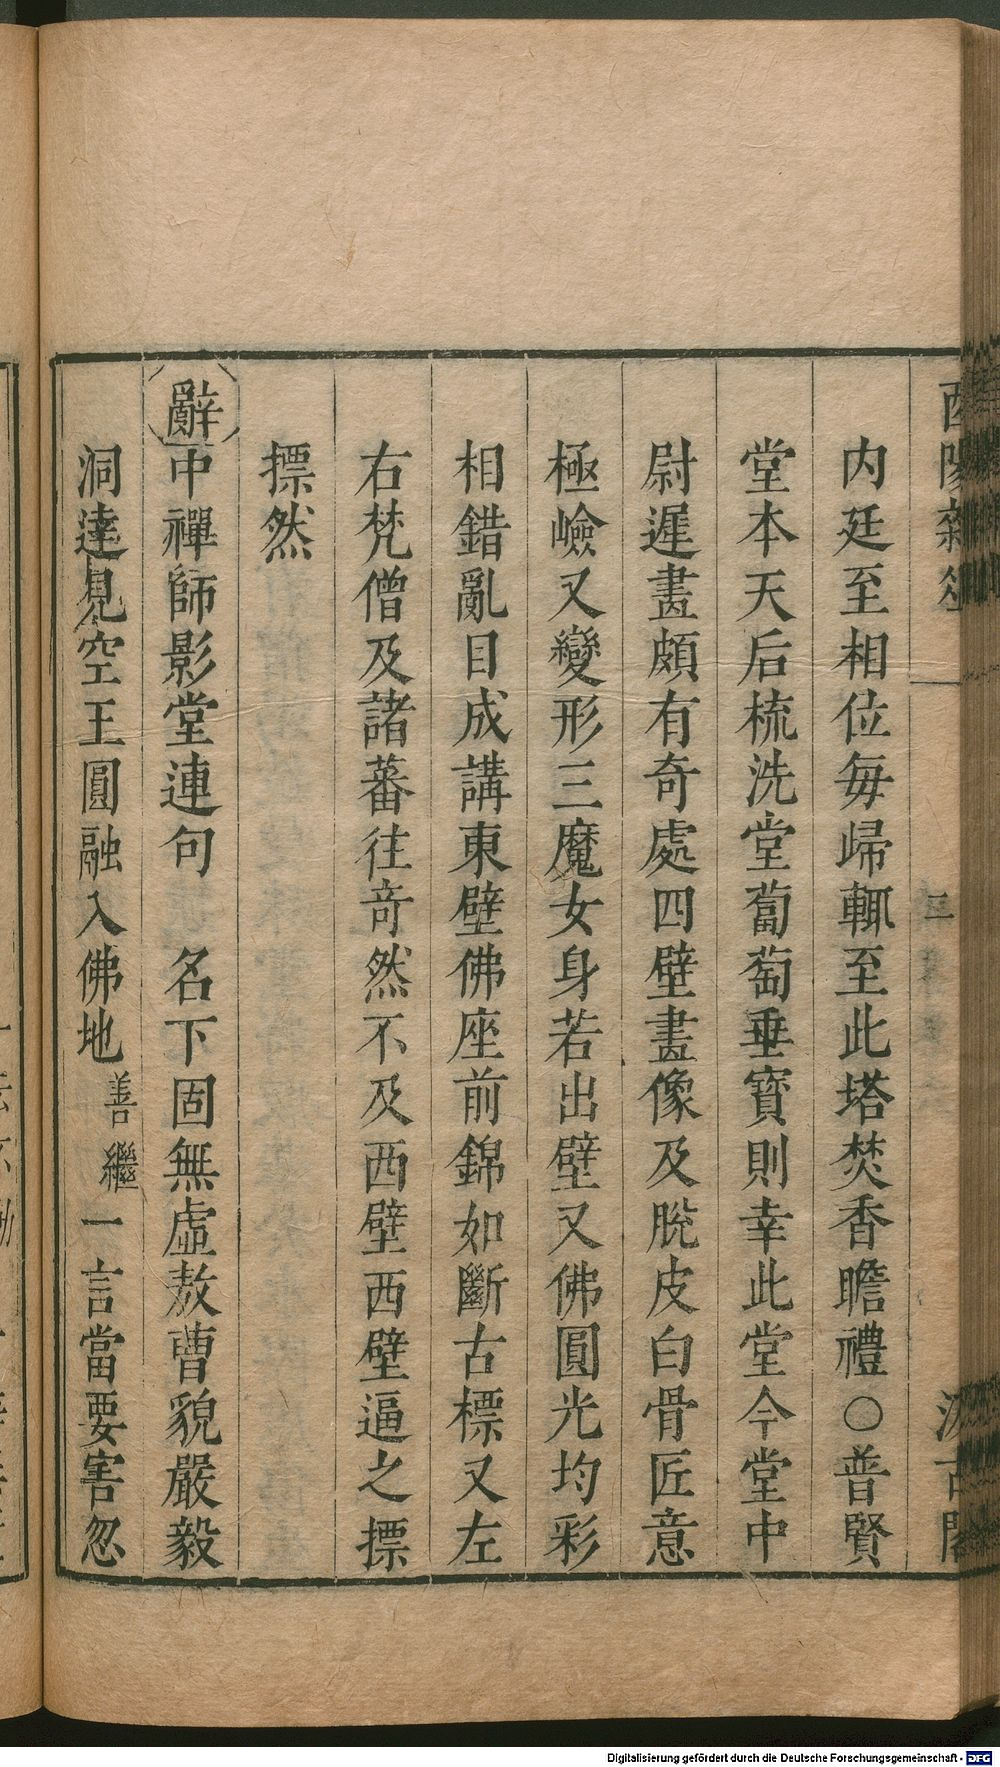 酉陽雜俎
三
汲古閣
内廷至相位毎歸輙至此塔焚香瞻禮○普賢
堂本天后梳洗堂蔔萄垂寶則幸此堂今堂中
尉遲畫頗有奇處四壁畫像及脫皮白骨匠意
極嶮又變形三魔女身若出壁又佛圓光均彩
相錯亂目成講東壁佛座前錦如斷古標又左
右梵僧及諸蕃往竒然不及西壁西壁逼之摽
摽然
辭中禪師影堂連句　名下固無虛敖曹貌嚴毅
洞達見空王圓融入佛地善繼一言當要害忽
Digitalisierung gefördert durch die Deutsche Forschungsgemeinschaft - DFG